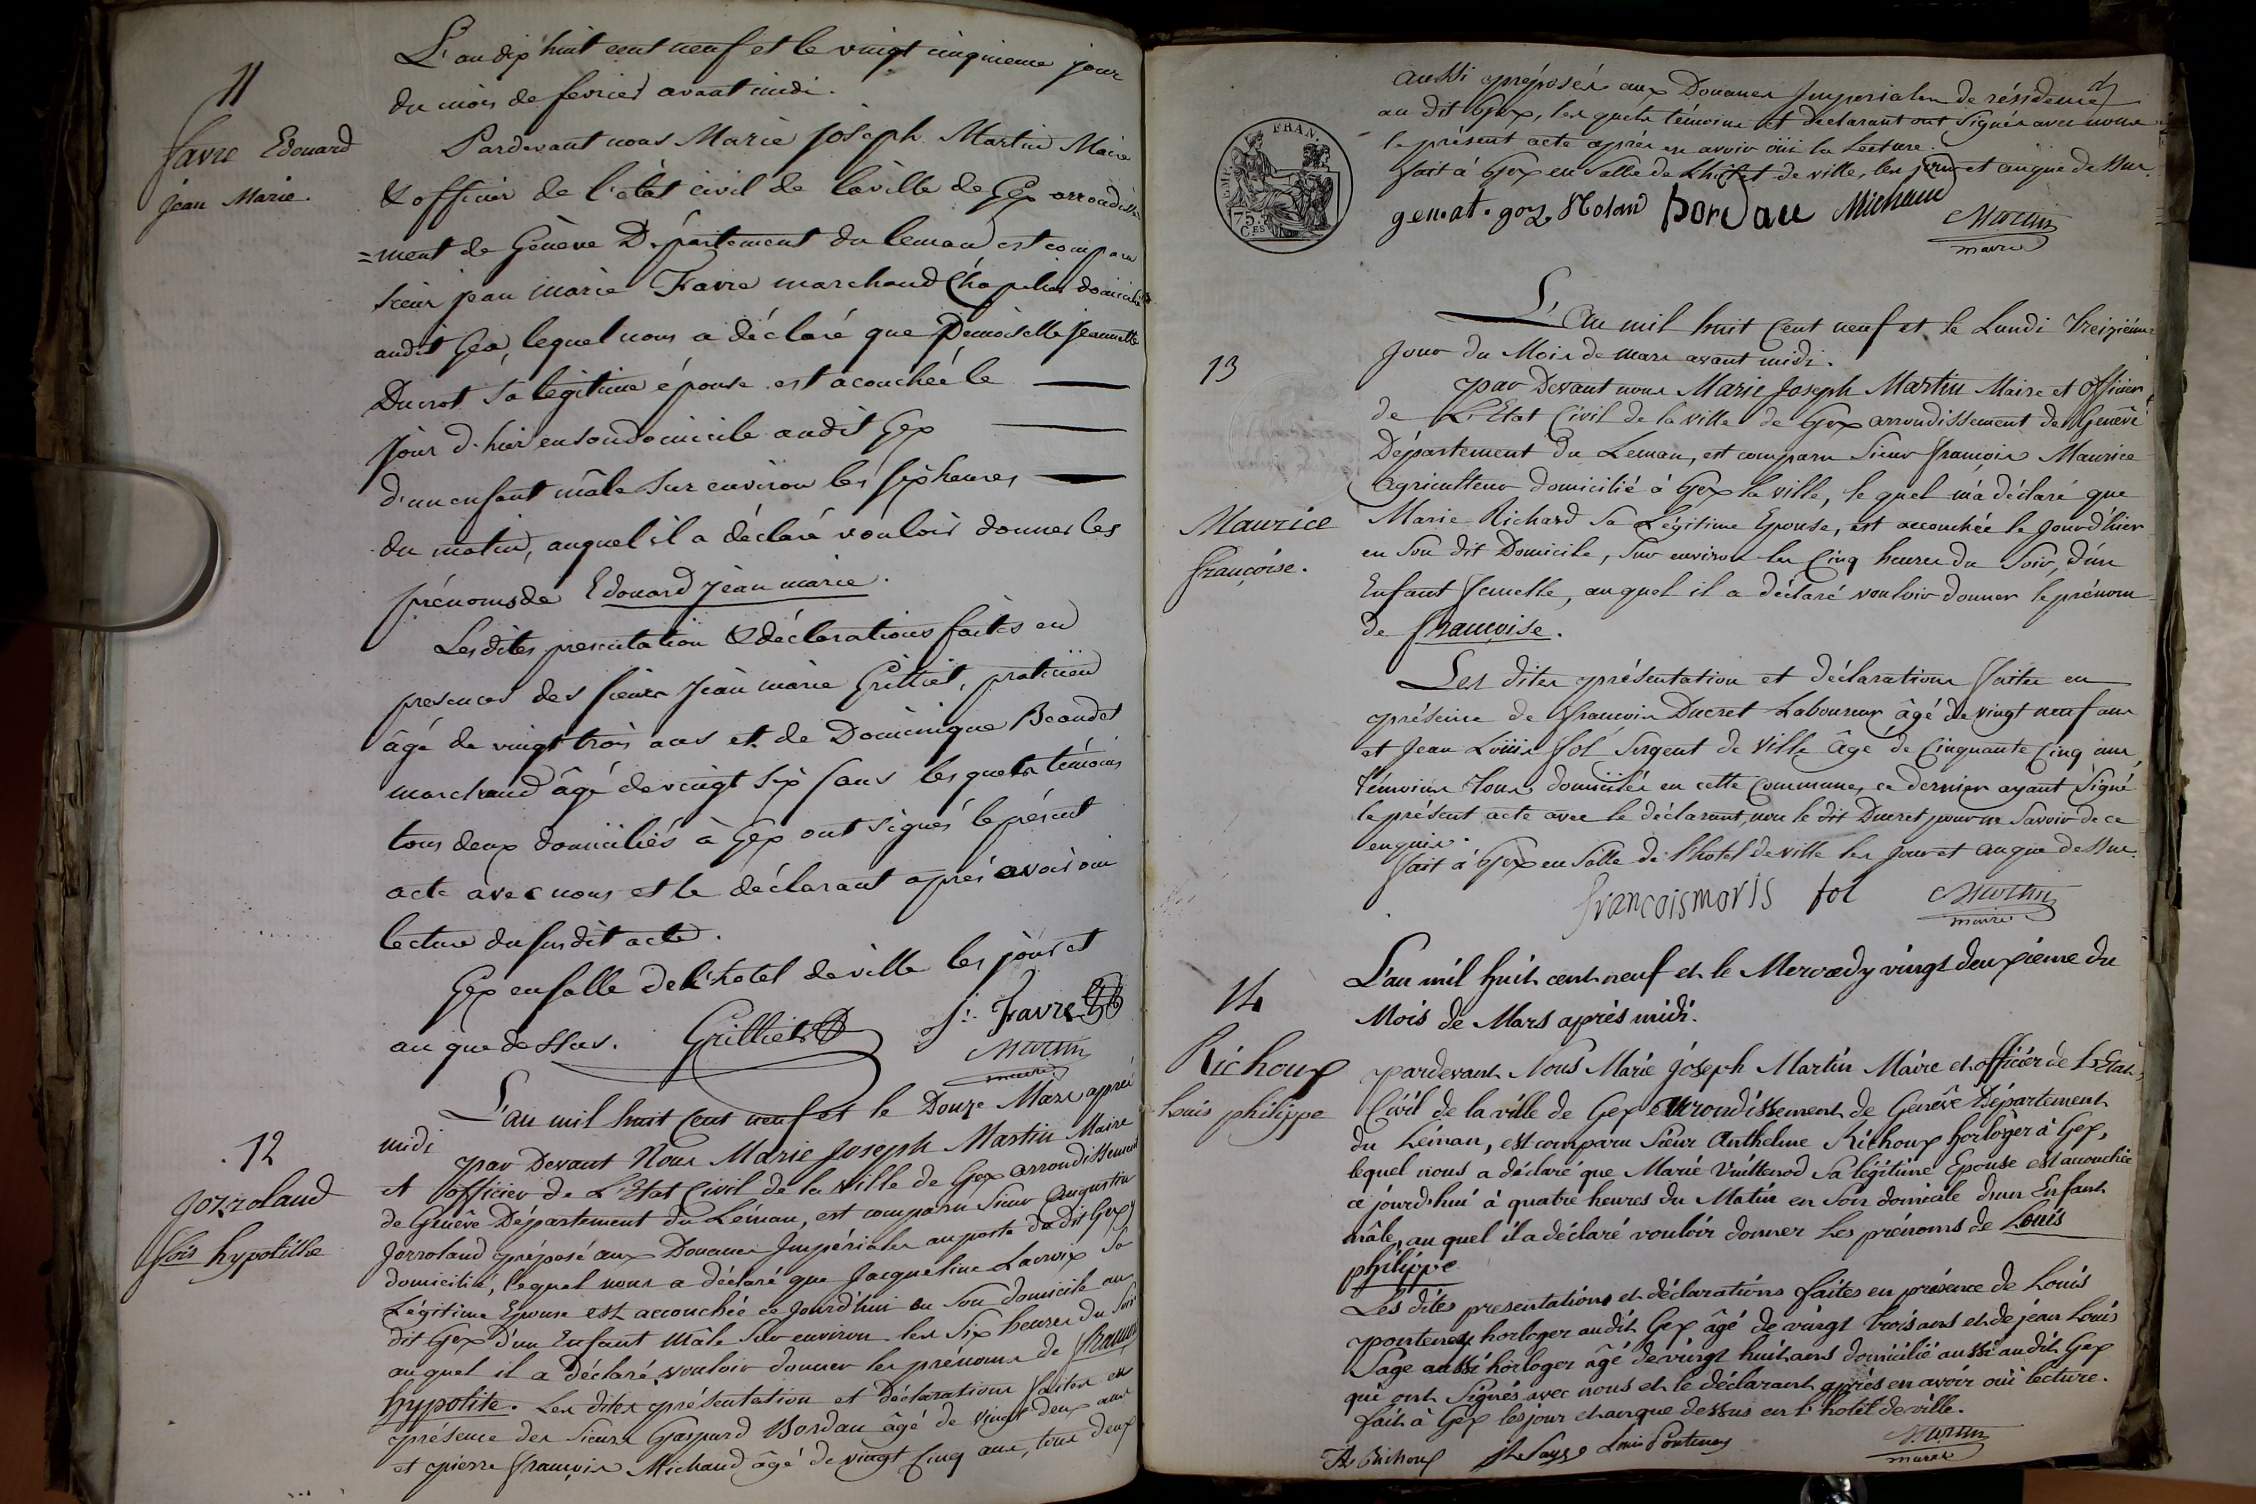 11
Favre Edouard
jean Marie.
L'an dix huit cent neuf et le vingt cinquieme jour
du mois de fevrier avant midi.
Pardevant nous Marie joseph Martin Maire
& officier de l'état civil de la ville de Gex arrondisse
=ment de Genève Département du leman est comparu
sieur jean marie Favre marchand Chapelier domicilié
audit Gex, lequel nous a déclaré que Demoiselle jeannette
Ducrot sa légitime épouse est acouchée le
jour d'hier en son domicile audit Gex
d'un enfant mâle sur environ les six heures
du matin, auquel il a déclaré vouloir donner les
prénoms de Edouard jean marie.
Les dites presentation & déclarations faites en
presences des sieurs jean marie Grilliet, praticien
âgé de vingt trois ans et de Dominique Beaudet
marchand âgé de vingt six sans lesquels témoins
tous deux domiciliés à Gex ont signés le présent
acte avec nous et le déclarant après avoir oui
lecture du susdit acte.
Gex en salle de l'hotel de ville les jour et
an que dessus. Grilliet J. Favre
Martin
maire
12
Jozroland
fois hypolithe
L'an mil huit Cent neuf et le Douze Mars après
midi
par Devant Nous Marie Joseph Martin Maire
et officier de L'Etat Civil de la ville de Gex arrondissement
de Genêve Département du Léman, est comparu Sieur Augustin
Jozroland préposé aux Douanes Impériales au poste du dit Gex y
domicilié, lequel nous a déclaré que Jacqueline Lacroix sa
Légitime Epouse est accouchée ce jourd'hui en Son domicile au
dit Gex d'un Enfant mâle Sur environ les Six heures du Soir
auquel il a déclaré vouloir donner les prénoms de françois
hypolite. Les dites présentation et déclarations faites en
présence des Sieurs Gaspard Bordau âgé de vingt deux ans
et pierre françois Michaud âgé de vingt Cinq ans, tous deux
aussi préposés aux Douanes Imperiales de résidence
au dit Gex, les quels témoins et déclarant ont signés avec nous
le présent acte après en avoir oüi la Lecture.
fait à Gex en Salle de Lhôtel de ville, les jour et an que dessus.
FRAN.
EMP.
75.
C.ES
Bordau Michaud
Martin
maire
13
Maurice
françoise.
L'An mil huit Cent neuf et le Lundi treizième
Jour du Mois de mars avant midi.
par Devant nous Marie Joseph Martin Maire et Officier
de L'Etat Civil de la ville de Gex arrondissement de Genêve
Département du Leman, est comparu Sieur françois Maurice
Agriculteur domicilié à Gex la ville, le quel m'a déclaré que
Marie Richard Sa Légitime Epouse, est accouchée le jourd'hier
en Son dit Domicile, Sur environ les Cinq heures du Soir, d'un
Enfant femelle, auquel il a déclaré vouloir donner le prénom
de françoise.
Les dites présentation et déclarations faites en
présence de françois Ducret Laboureur âgé de vingt neuf ans
et Jean Loüis fol Sergent de ville âgé de Cinquante Cinq ans,
témoins Tous domiciliés en cette Commune, ce dernier ayant Signé
le présent acte avec le déclarant, non le dit Ducret pour ne Savoir de ce
enquis.
fait à Gex en Salle de l'hotel de ville les jour et an que dessus.
francois moris fol Martin
maire
14
Richoux
Louis philippe
L'an mil huit cent neuf et le Mercredy vingt deuxième du
Mois de Mars après midi.
pardevant Nous Marie joseph Martin Maire et officier de L'Etat
Civil de la ville de Gex arrondissement de Genêve Département
du Léman, est comparu Sieur Anthelme Richoux horloger à Gex,
lequel nous a déclaré que Marie Vuillerod Sa légitime Epouse est accouchée
ce jourd'hui à quatre heures du Matin en Son domicile d'un Enfant
mâle, au quel il a déclaré vouloir donner Les prénoms de Louis
philippe
Les dites presentations et déclarations faites en présence de Louis
ponteney horloger audit Gex âgé de vingt trois ans et de jean Louis
Page aussi horloger âgé de vingt huit ans domicilié aussi audit Gex
qui ont Signés avec nous et le déclarant après en avoir oüi lecture.
fait à Gex les jour et an que dessus en l'hotel de ville.
Richoux Louis Ponteney Martin
maire